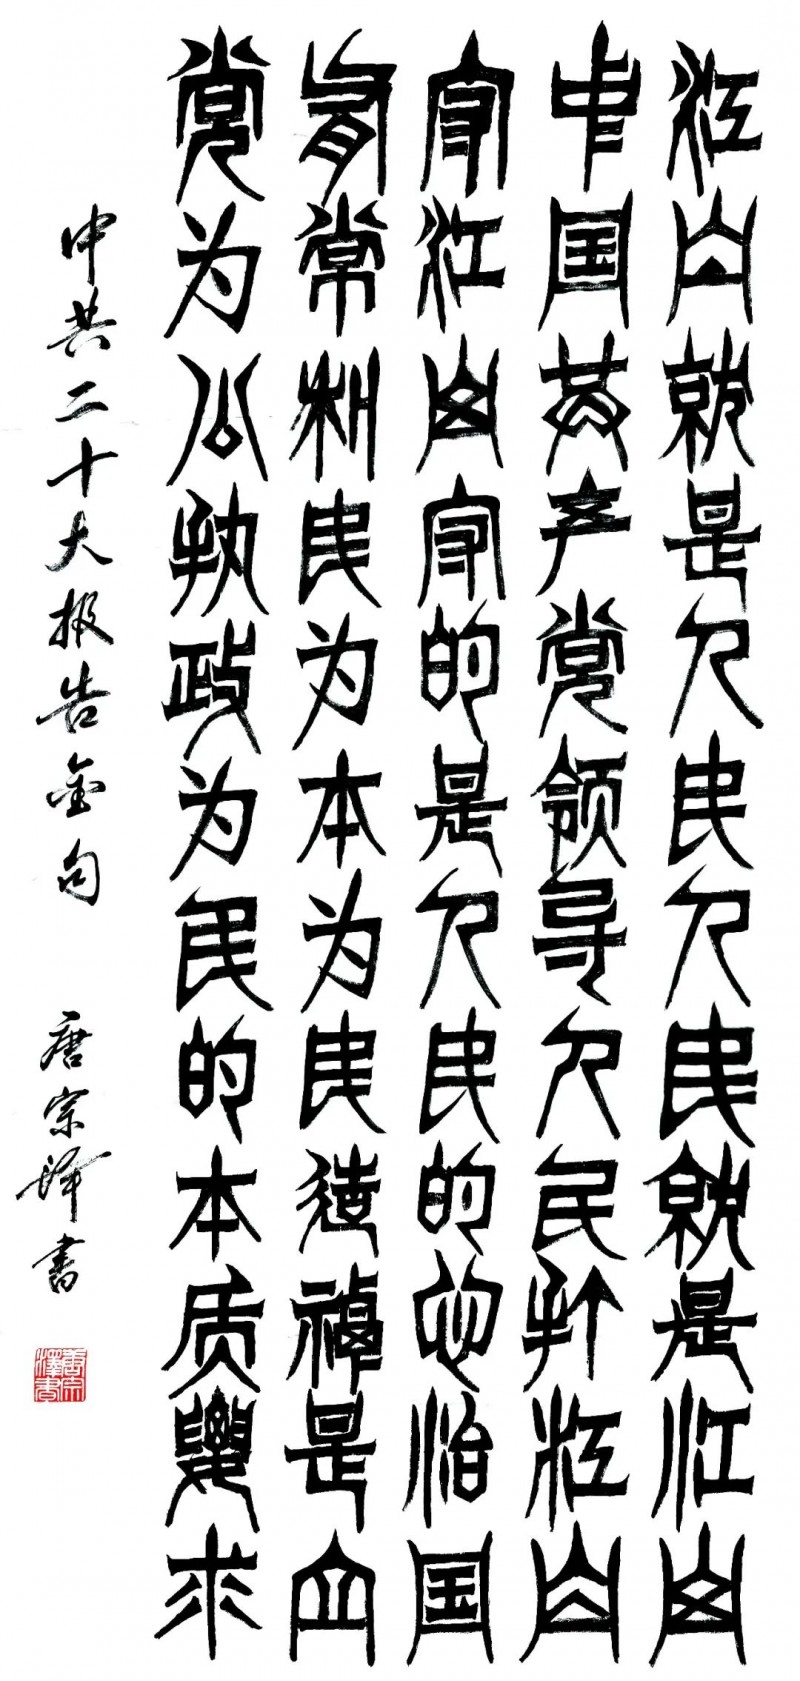 江山就是人民人民就是江山
中国共产党领导人民打江山
守江山守的是人民的心治国
有常利民为本为民造福是立
党为公执政为民的本质要求
中共二十大报告金句 唐宗泽书
唐宗澤書